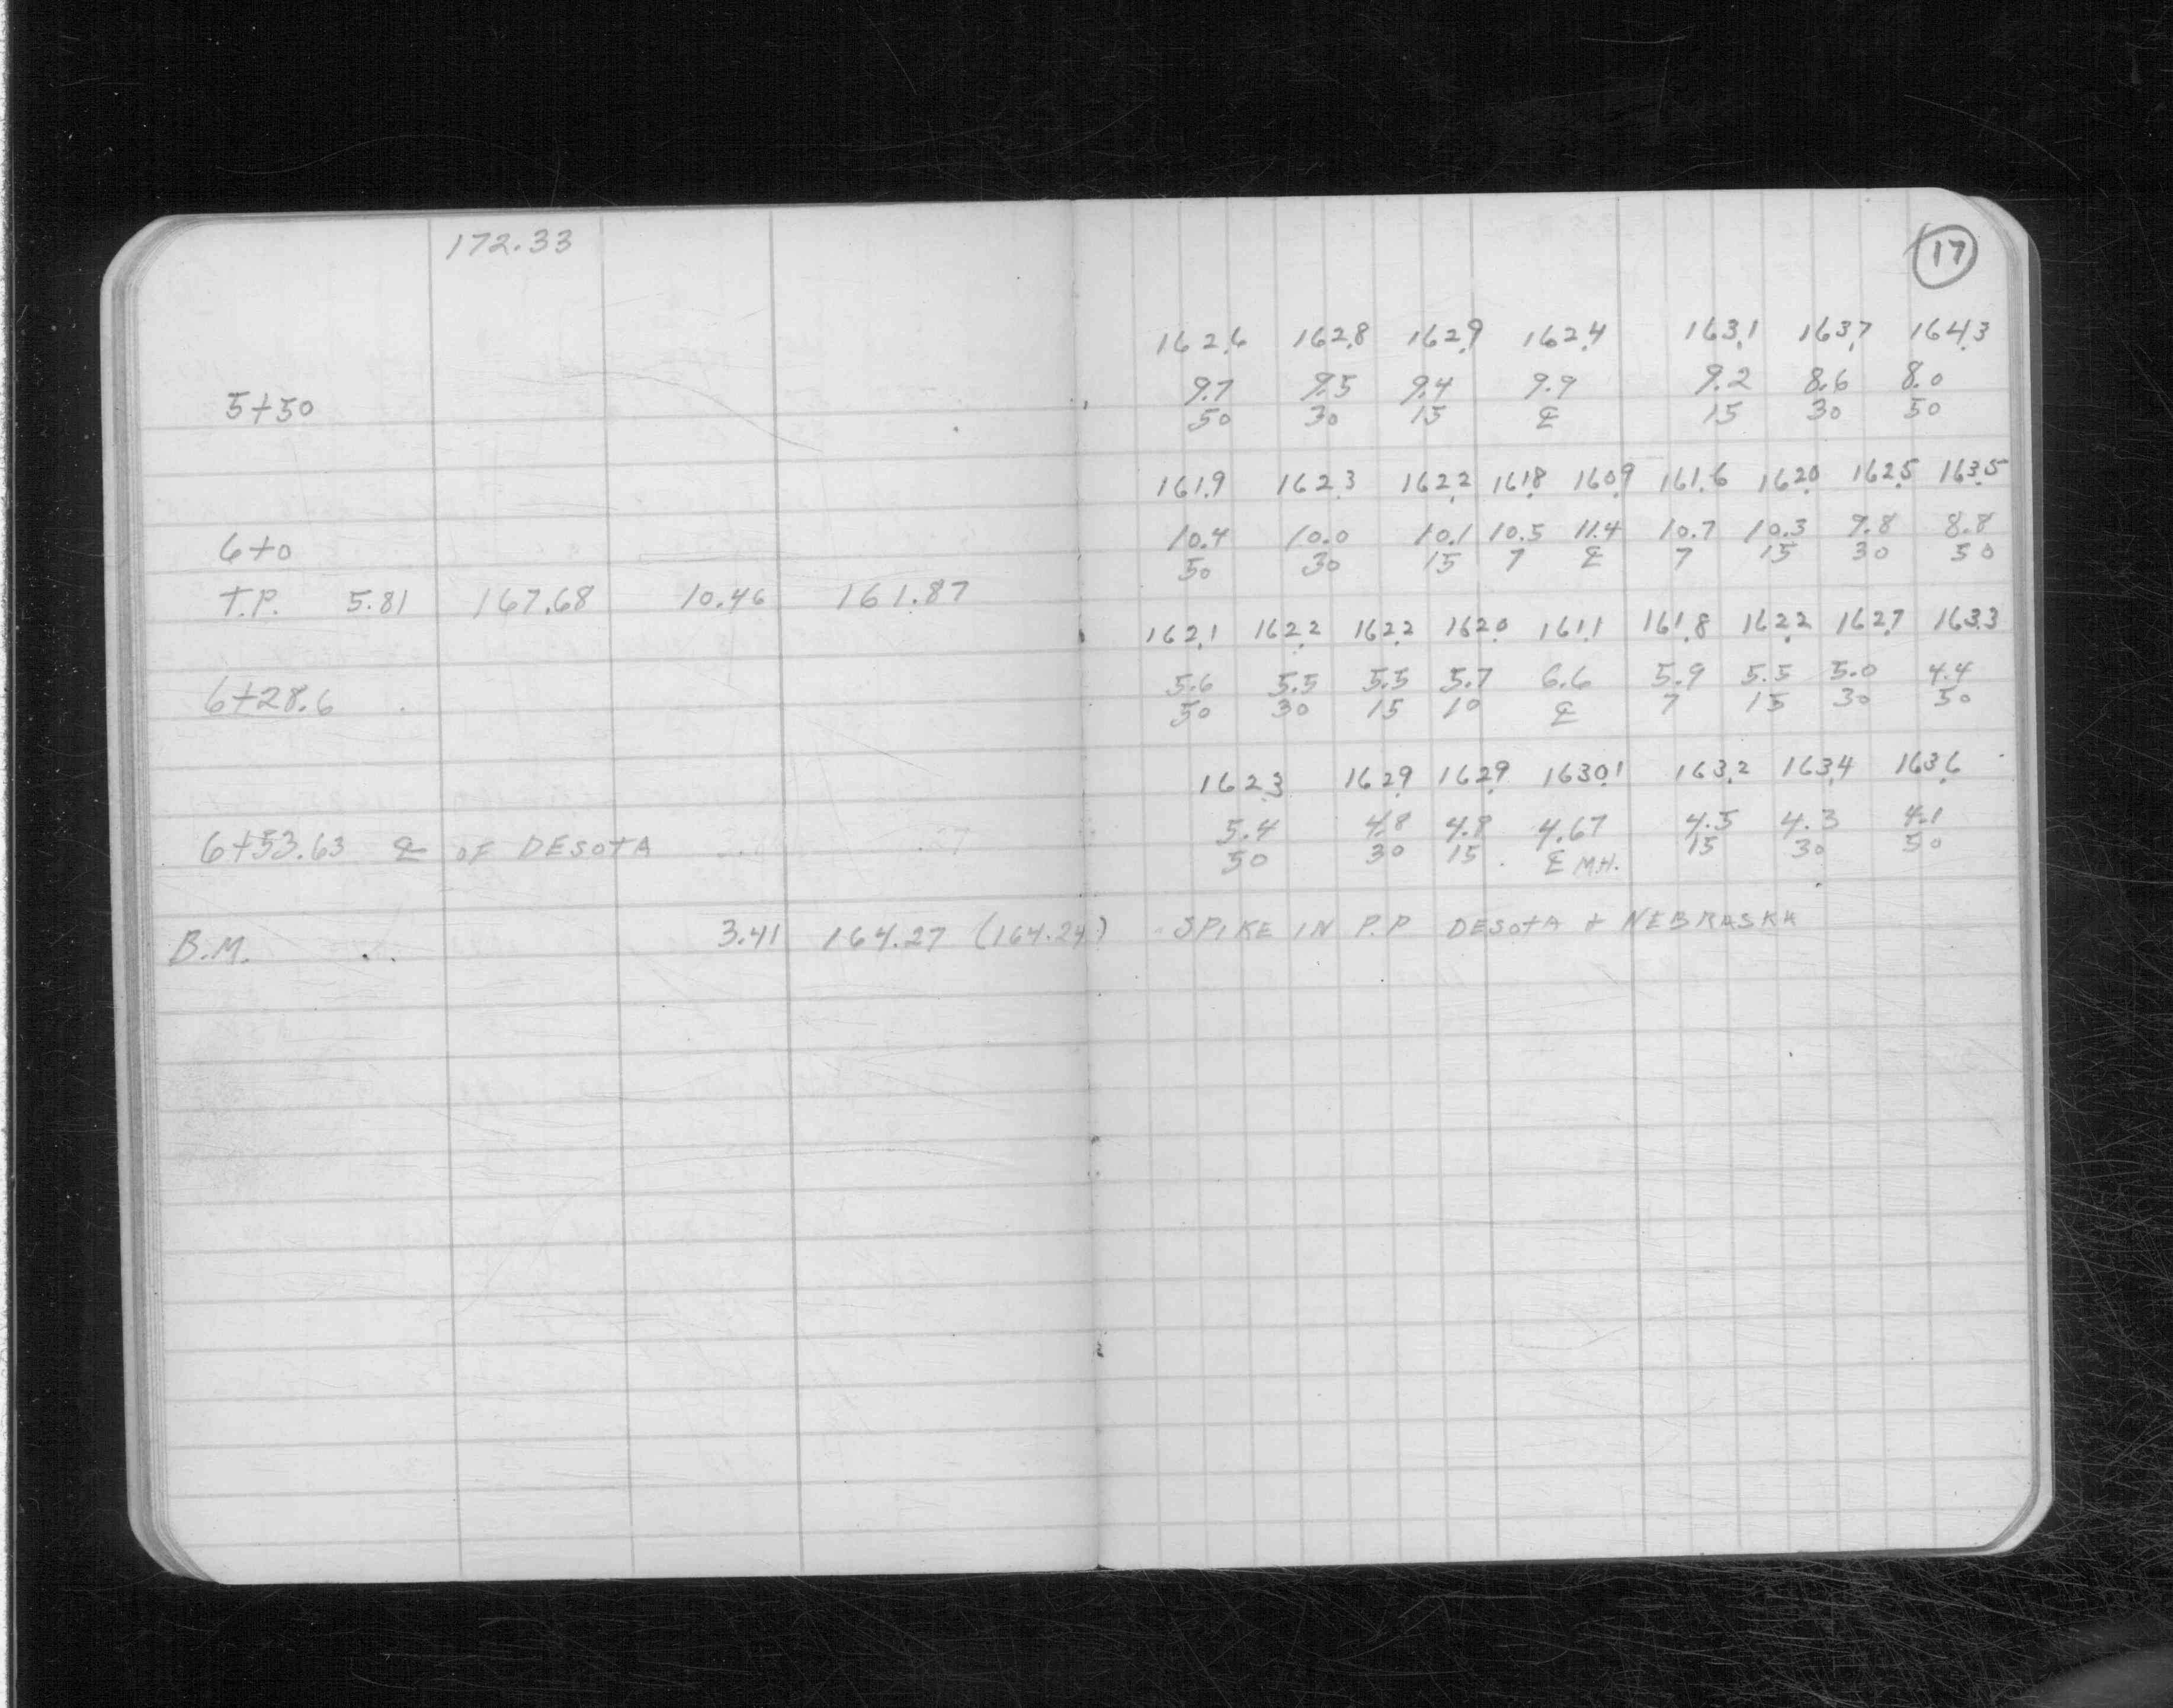 172.33
17
162.6 162.8 162.9 162.4 163.1 163.7 164.3
9.7 9.5 9.4 9.9 9.2 8.6 8.0
5+50 50 30 15 ℄ 15 30 50
161.9 162.3 162.2 161.8 160.9 161.6 162.0 162.5 163.5
6+0 10.4 10.0 10.1 10.5 11.4 10.7 10.3 9.8 8.8
50 30 15 7 ℄ 7 15 30 50
T.P. 5.81 167.68 10.46 161.87
162.1 162.2 162.2 162.0 161.1 161.8 162.2 162.7 163.3
5.6 5.5 5.5 5.7 6.6 5.9 5.5 5.0 4.4
6+28.6 50 30 15 10 ℄ 7 15 30 50
162.3 162.9 162.9 163.01 163.2 163.4 163.6
5.4 4.8 4.8 4.67 4.5 4.3 4.1
6+53.63 ℄ OF DESOTA 50 30 15 ℄ M.H. 15 30 50
B.M. 3.41 164.27 (164.24) SPIKE IN P.P DESOTA + NEBRASKA